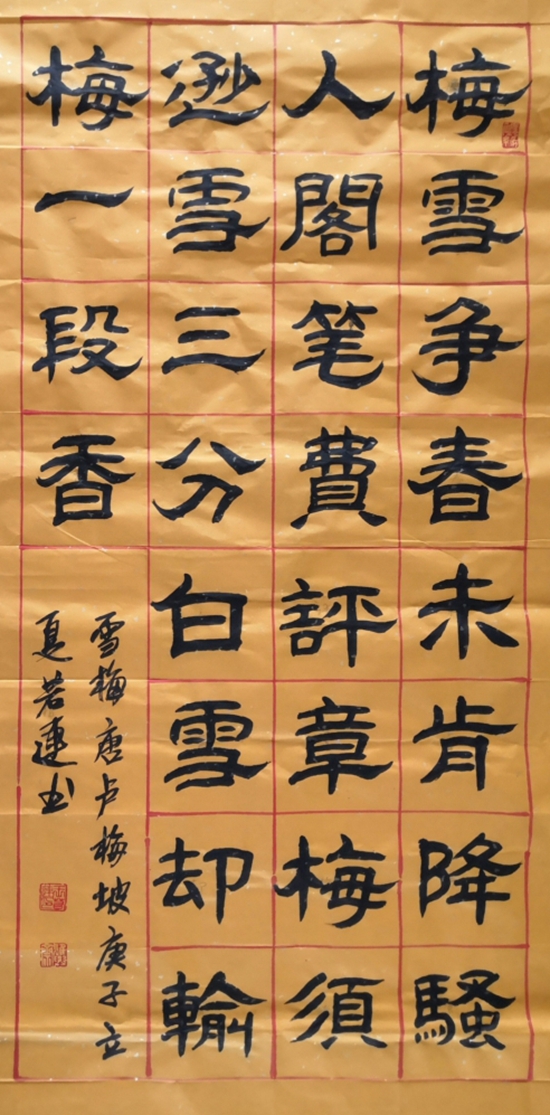 梅雪争春未肯降騷
人閣笔費評章梅須
逊雪三分白雪却輸
梅一段香
雪梅唐卢梅坡庚子立
夏若連书